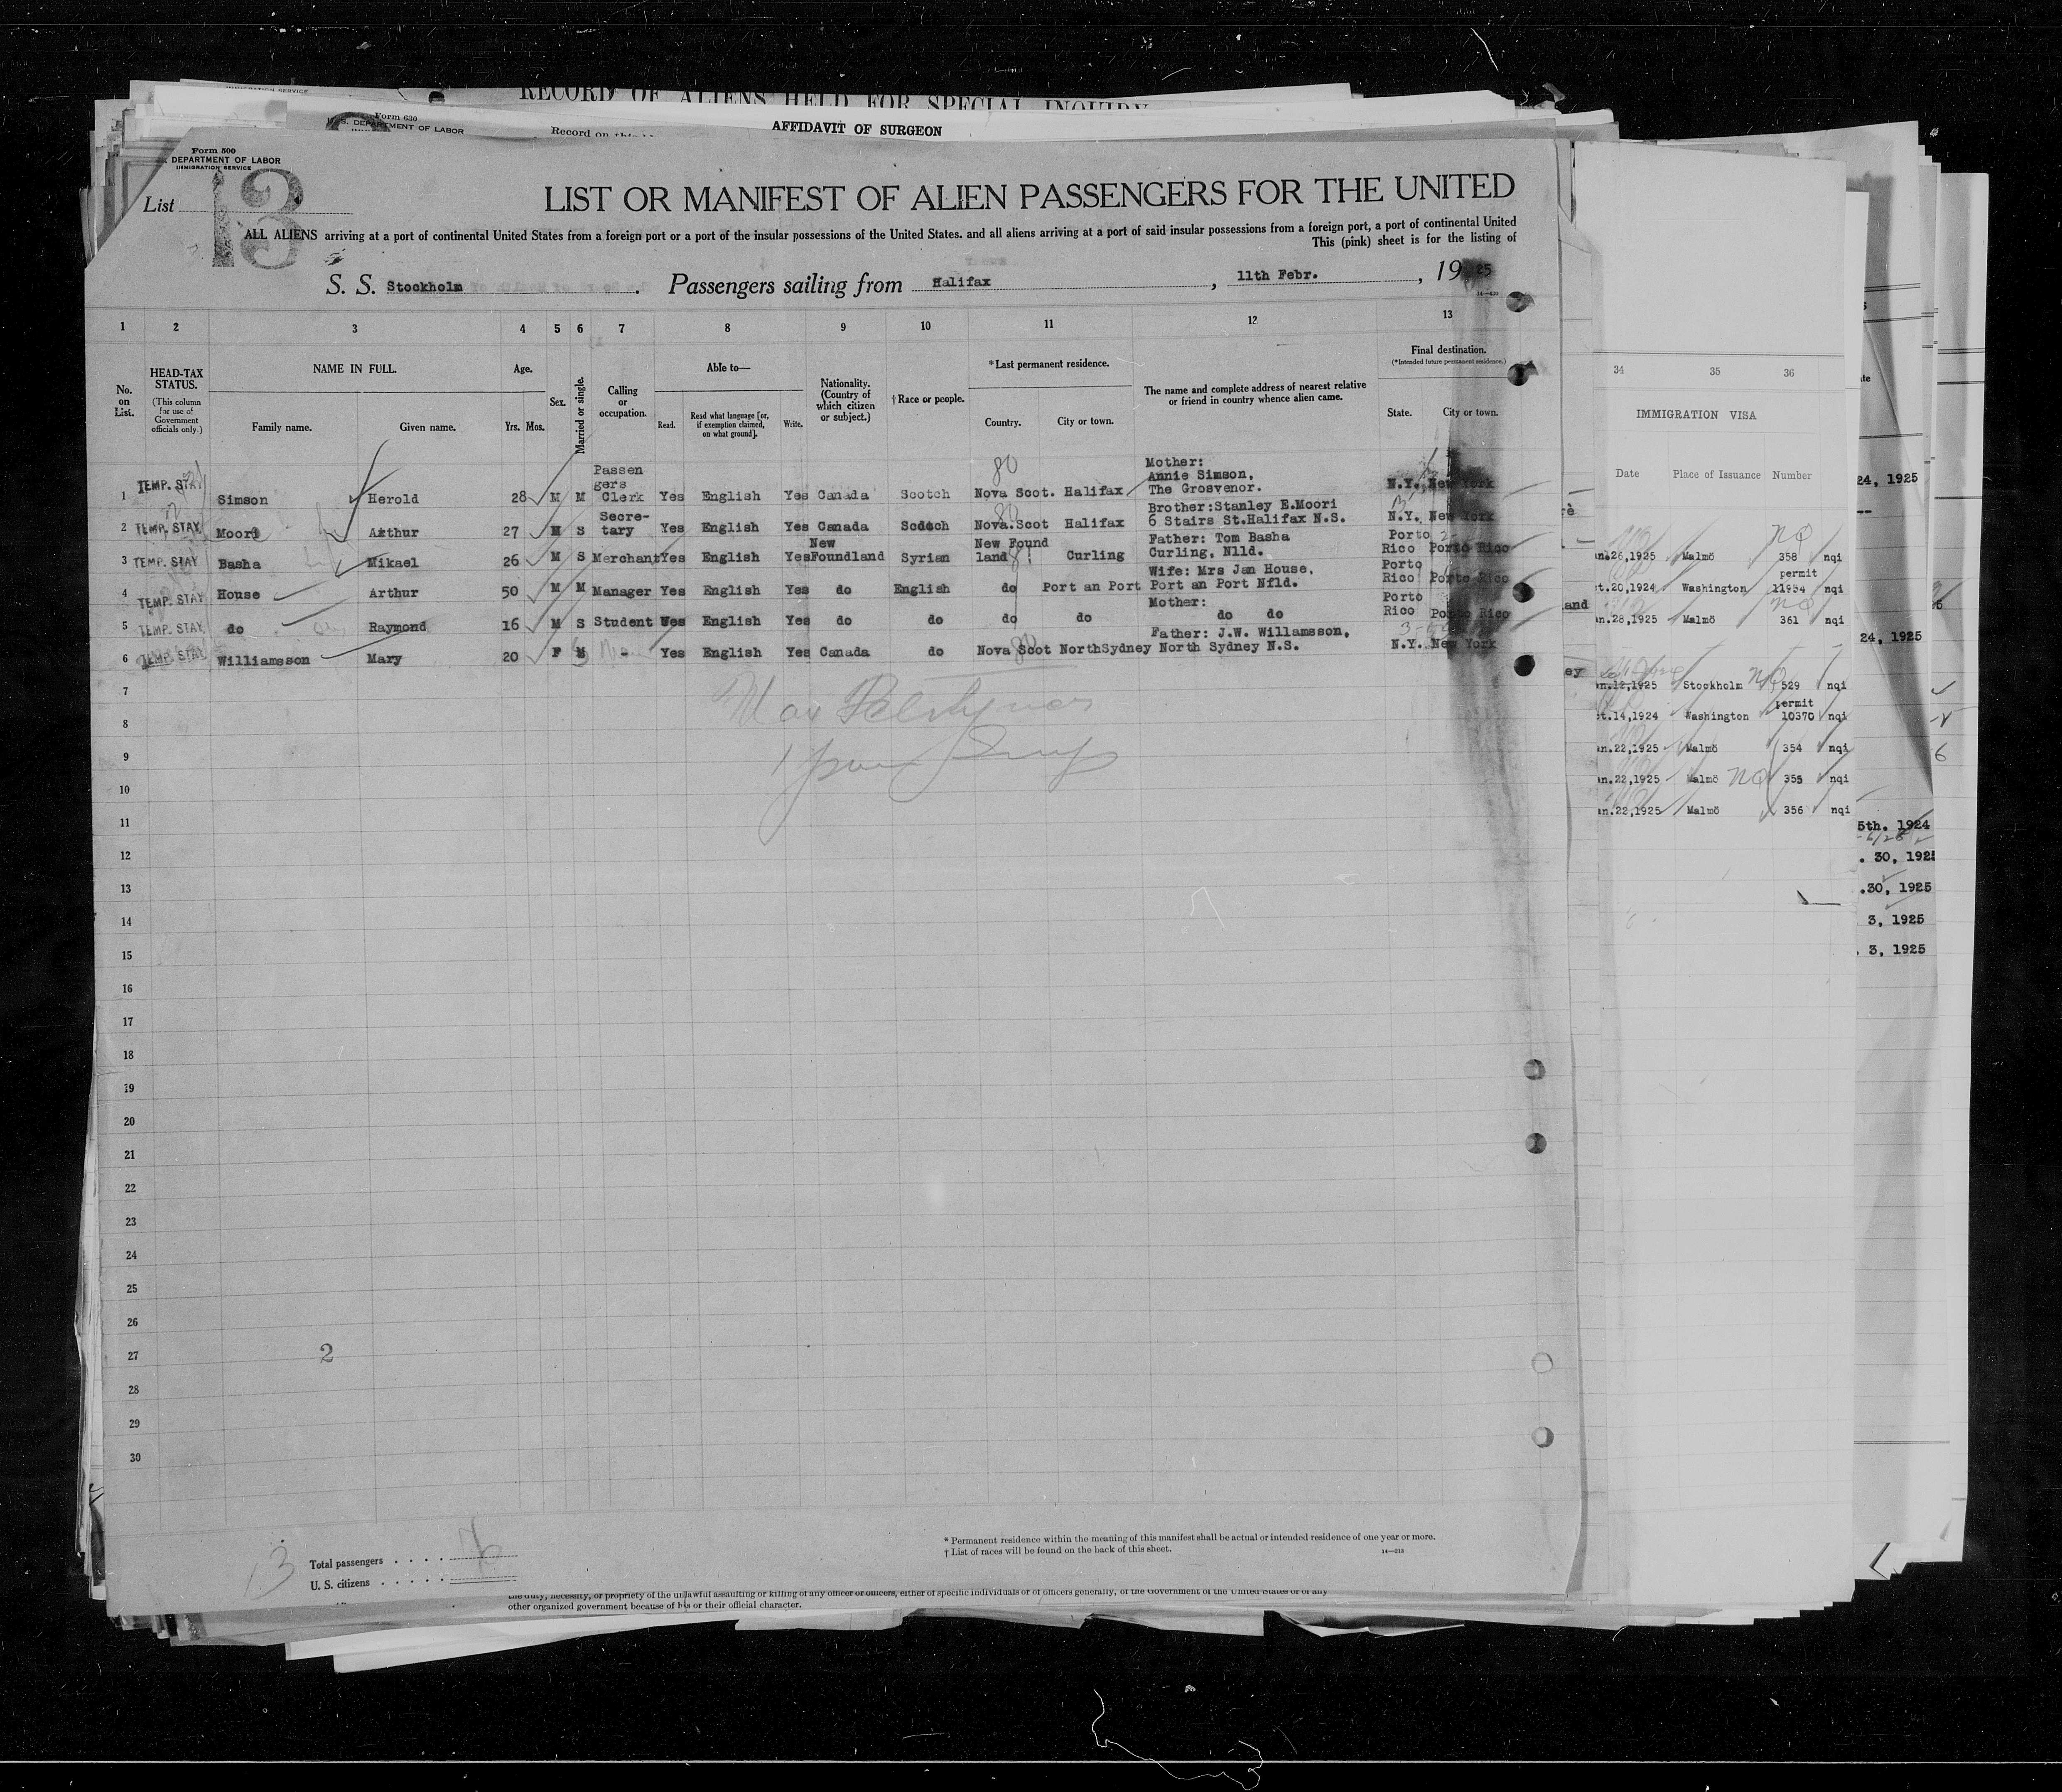 RECORD OF ALIENS HELD FOR SPECIAL INQUIRY
Form 630
U. S. DEPARTMENT OF LABOR
Record on
AFFIDAVIT OF SURGEON
Form 500
DEPARTMENT OF LABOR
IMMIGRATION SERVICE
List 13
LIST OR MANIFEST OF ALIEN PASSENGERS FOR THE UNITED
ALL ALIENS arriving at a port of continental United States from a foreign port or a port of the insular possessions of the United States. and all aliens arriving at a port of said insular possessions from a foreign port, a port of continental United
This (pink) sheet is for the listing of
S. S. Stockholm . Passengers sailing from Halifax , 11th Febr. , 1925
1 2 3 4 5 6 7 8 9 10 11 12 13
No. on List. HEAD-TAX STATUS. (This column for use of Government officials only.) NAME IN FULL. Family name. Given name. Age. Yrs. Mos. Sex. Married or single. Calling or occupation. Able to— Read. Read what language [or, if exemption claimed, on what ground]. Write. Nationality. (Country of which citizen or subject.) †Race or people. *Last permanent residence. Country. City or town. The name and complete address of nearest relative or friend in country whence alien came. Final destination. (*Intended future permanent residence.) State. City or town.
1 TEMP. STAY Simson Herold 28 M M Passengers Clerk Yes English Yes Canada Scotch Nova Scot. Halifax Mother: Annie Simson, The Grosvenor. N.Y. New York
2 TEMP. STAY Moori Arthur 27 M S Secre-tary Yes English Yes Canada Scotch Nova.Scot Halifax Brother:Stanley E.Moori 6 Stairs St.Halifax N.S. N.Y. New York
3 TEMP. STAY Basha Mikael 26 M S Merchant Yes English Yes New Foundland Syrian New Found land Curling Father: Tom Basha Curling, Nlld. Porto Rico Porto Rico
4 TEMP. STAY House Arthur 50 M M Manager Yes English Yes do English do Port an Port Wife: Mrs Jan House, Port an Port Nfld. Porto Rico Porto Rico
5 TEMP. STAY do Raymond 16 M S Student Yes English Yes do do do do Mother: do do Porto Rico Porto Rico
6 TEMP. STAY Williamsson Mary 20 F M - Yes English Yes Canada do Nova Scot NorthSydney Father: J.W. Willamsson, North Sydney N.S. N.Y. New York
7
8
9
10
11
12
13
14
15
16
17
18
19
20
21
22
23
24
25
26
27 2
28
29
30
13
Total passengers . . . .
U. S. citizens . . . . .
* Permanent residence within the meaning of this manifest shall be actual or intended residence of one year or more.
† List of races will be found on the back of this sheet.
14—213
the duty, necessity, or propriety of the unlawful assaulting or killing of any officer or officers, either of specific individuals or of officers generally, of the Government of the United States or of any
other organized government because of his or their official character.
34 35 36
IMMIGRATION VISA
Date Place of Issuance Number
an.26,1925 Malmö 358 nqi
permit
t.20,1924 Washington 11954 nqi
an.28,1925 Malmö 361 nqi
an.12,1925 Stockholm 529 nqi
permit
t.14,1924 Washington 10370 nqi
an.22,1925 Malmö 354 nqi
an.22,1925 Malmö 355 nqi
an.22,1925 Malmö 356 nqi
24, 1925
24, 1925
5th. 1924
. 30, 1925
.30, 1925
3, 1925
. 3, 1925